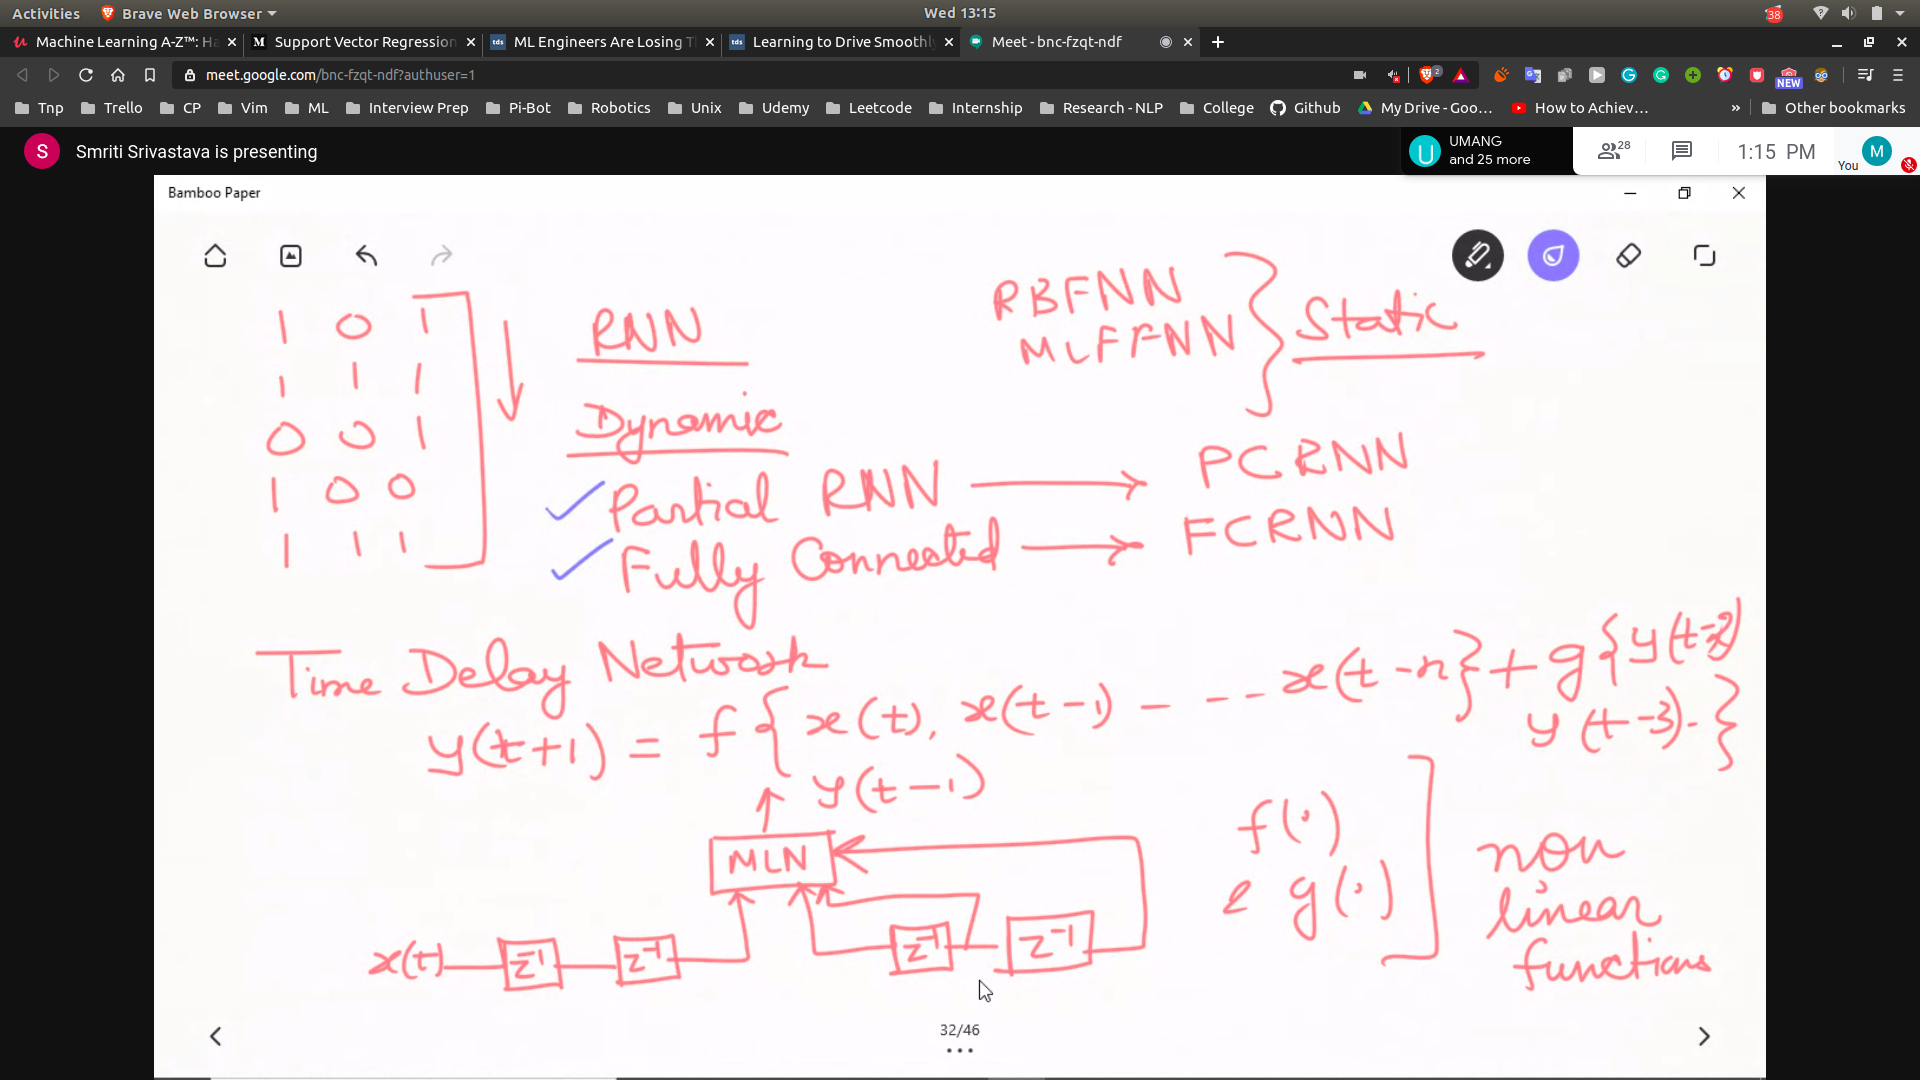 Activities Brave Web Browser Wed 13:15 38
Machine Learning A-Z™: Ha Support Vector Regression ML Engineers Are Losing T Learning to Drive Smoothly Meet - bnc-fzqt-ndf
meet.google.com/bnc-fzqt-ndf?authuser=1 2 NEW
Tnp Trello CP Vim ML Interview Prep Pi-Bot Robotics Unix Udemy Leetcode Internship Research - NLP College Github My Drive - Goo... How to Achiev... » Other bookmarks
S Smriti Srivastava is presenting
U UMANG
and 25 more
28 1:15 PM You M
Bamboo Paper
1 0 1
1 1 1
0 0 1
1 0 0
1 1 1
RNN
RBFNN
MLFFNN
Static
Dynamic
Partial RNN → PCRNN
Fully Connected → FCRNN
Time Delay Network
y(t+1) = f{x(t), x(t-1) - - -- x(t-n} + g{y(t-2)
y(t-3)- }
y(t-1)
MLN
x(t) z⁻¹ z⁻¹ z⁻¹ z⁻¹
f(·)
& g(·)
non
linear
functions
32/46